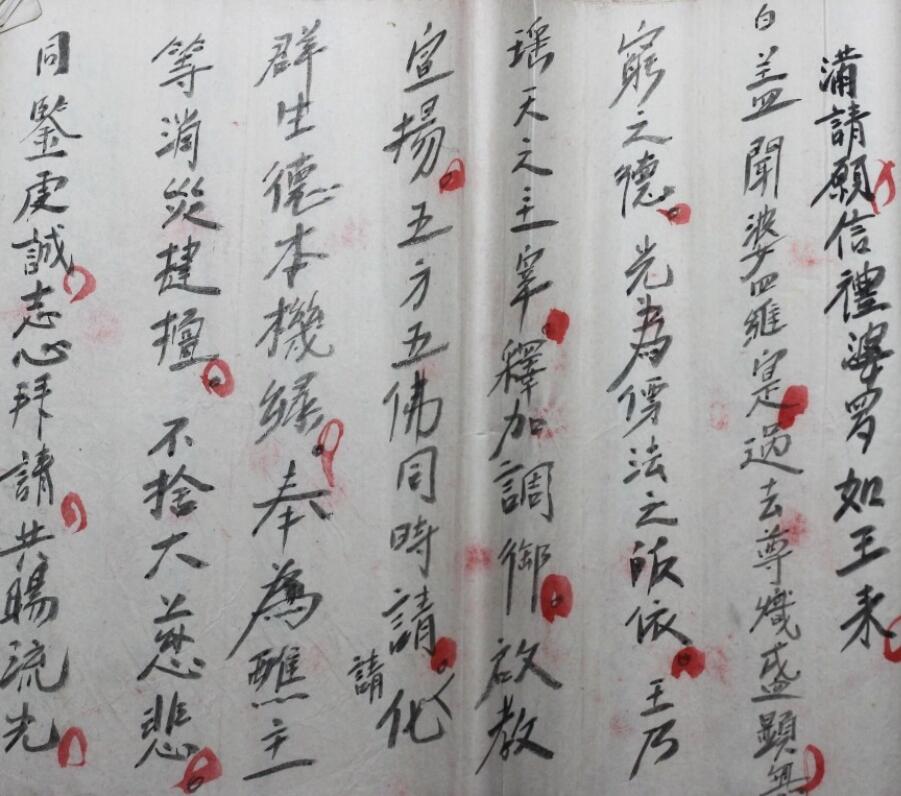 滿請願信禮婆罗如王来
白盖聞婆四維寔是過去尊熾盛顯無
窮之德光為儒法之皈依王乃
瑶天之主宰釋加調御啟教
宣揚五方五佛同時請化
請
群生德本機緣奉為醮主
等消災揵壇不捨大慈悲
同鑒虔誠志心拜請共賜流光